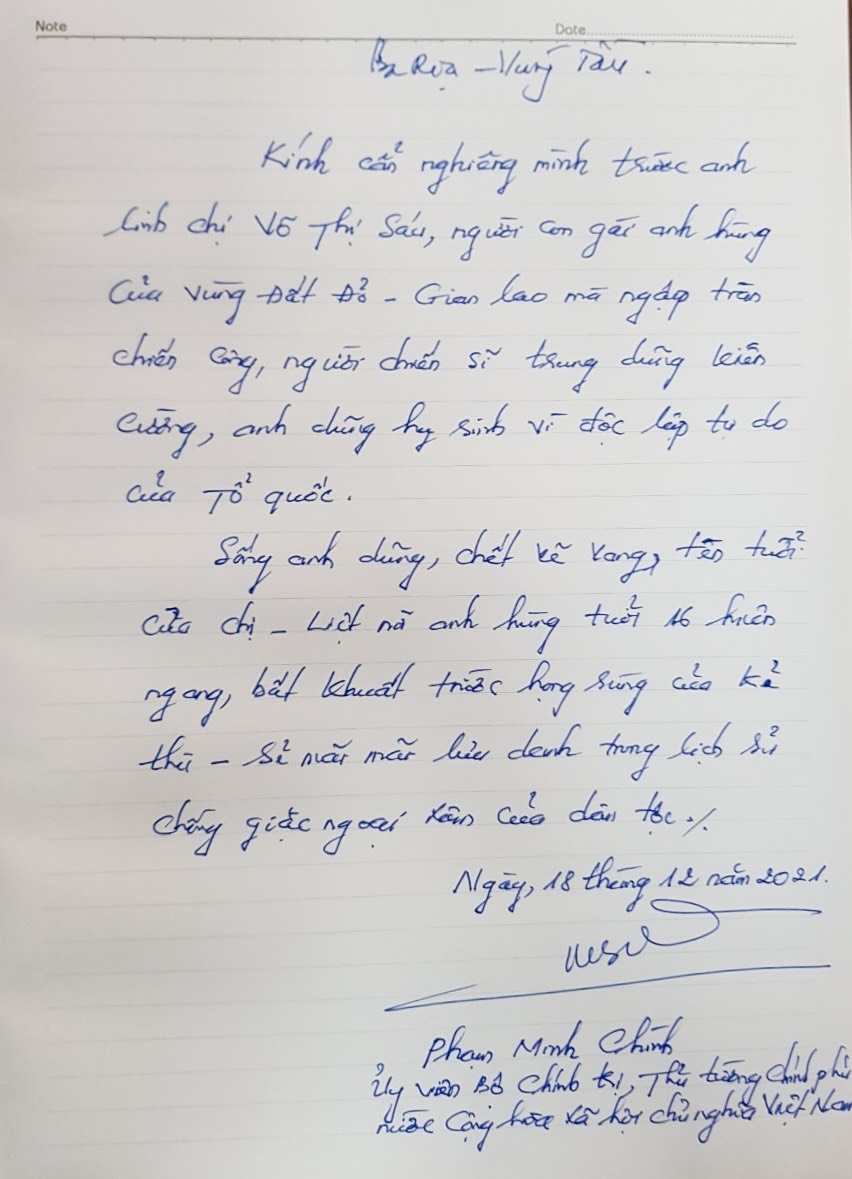 Note Date
Bà Rịa - Vũng Tàu.
Kính cẩn nghiêng mình trước anh
linh chị Võ Thị Sáu, người con gái anh hùng
của vùng Đất Đỏ - Gian lao mà ngập tràn
chiến công, người chiến sĩ trung dũng kiên
cường, anh dũng hy sinh vì độc lập tự do
của Tổ quốc.
Sống anh dũng, chết vẻ vang, tên tuổi
của chị - Liệt nữ anh hùng tuổi 16 hiên
ngang, bất khuất trước họng súng của kẻ
thù - Sẽ mãi mãi lưu danh trong lịch sử
chống giặc ngoại xâm của dân tộc ./.
Ngày, 18 tháng 12 năm 2021.
Phạm Minh Chính
Ủy viên Bộ Chính trị, Thủ tướng Chính phủ
nước Cộng hòa xã hội chủ nghĩa Việt Nam